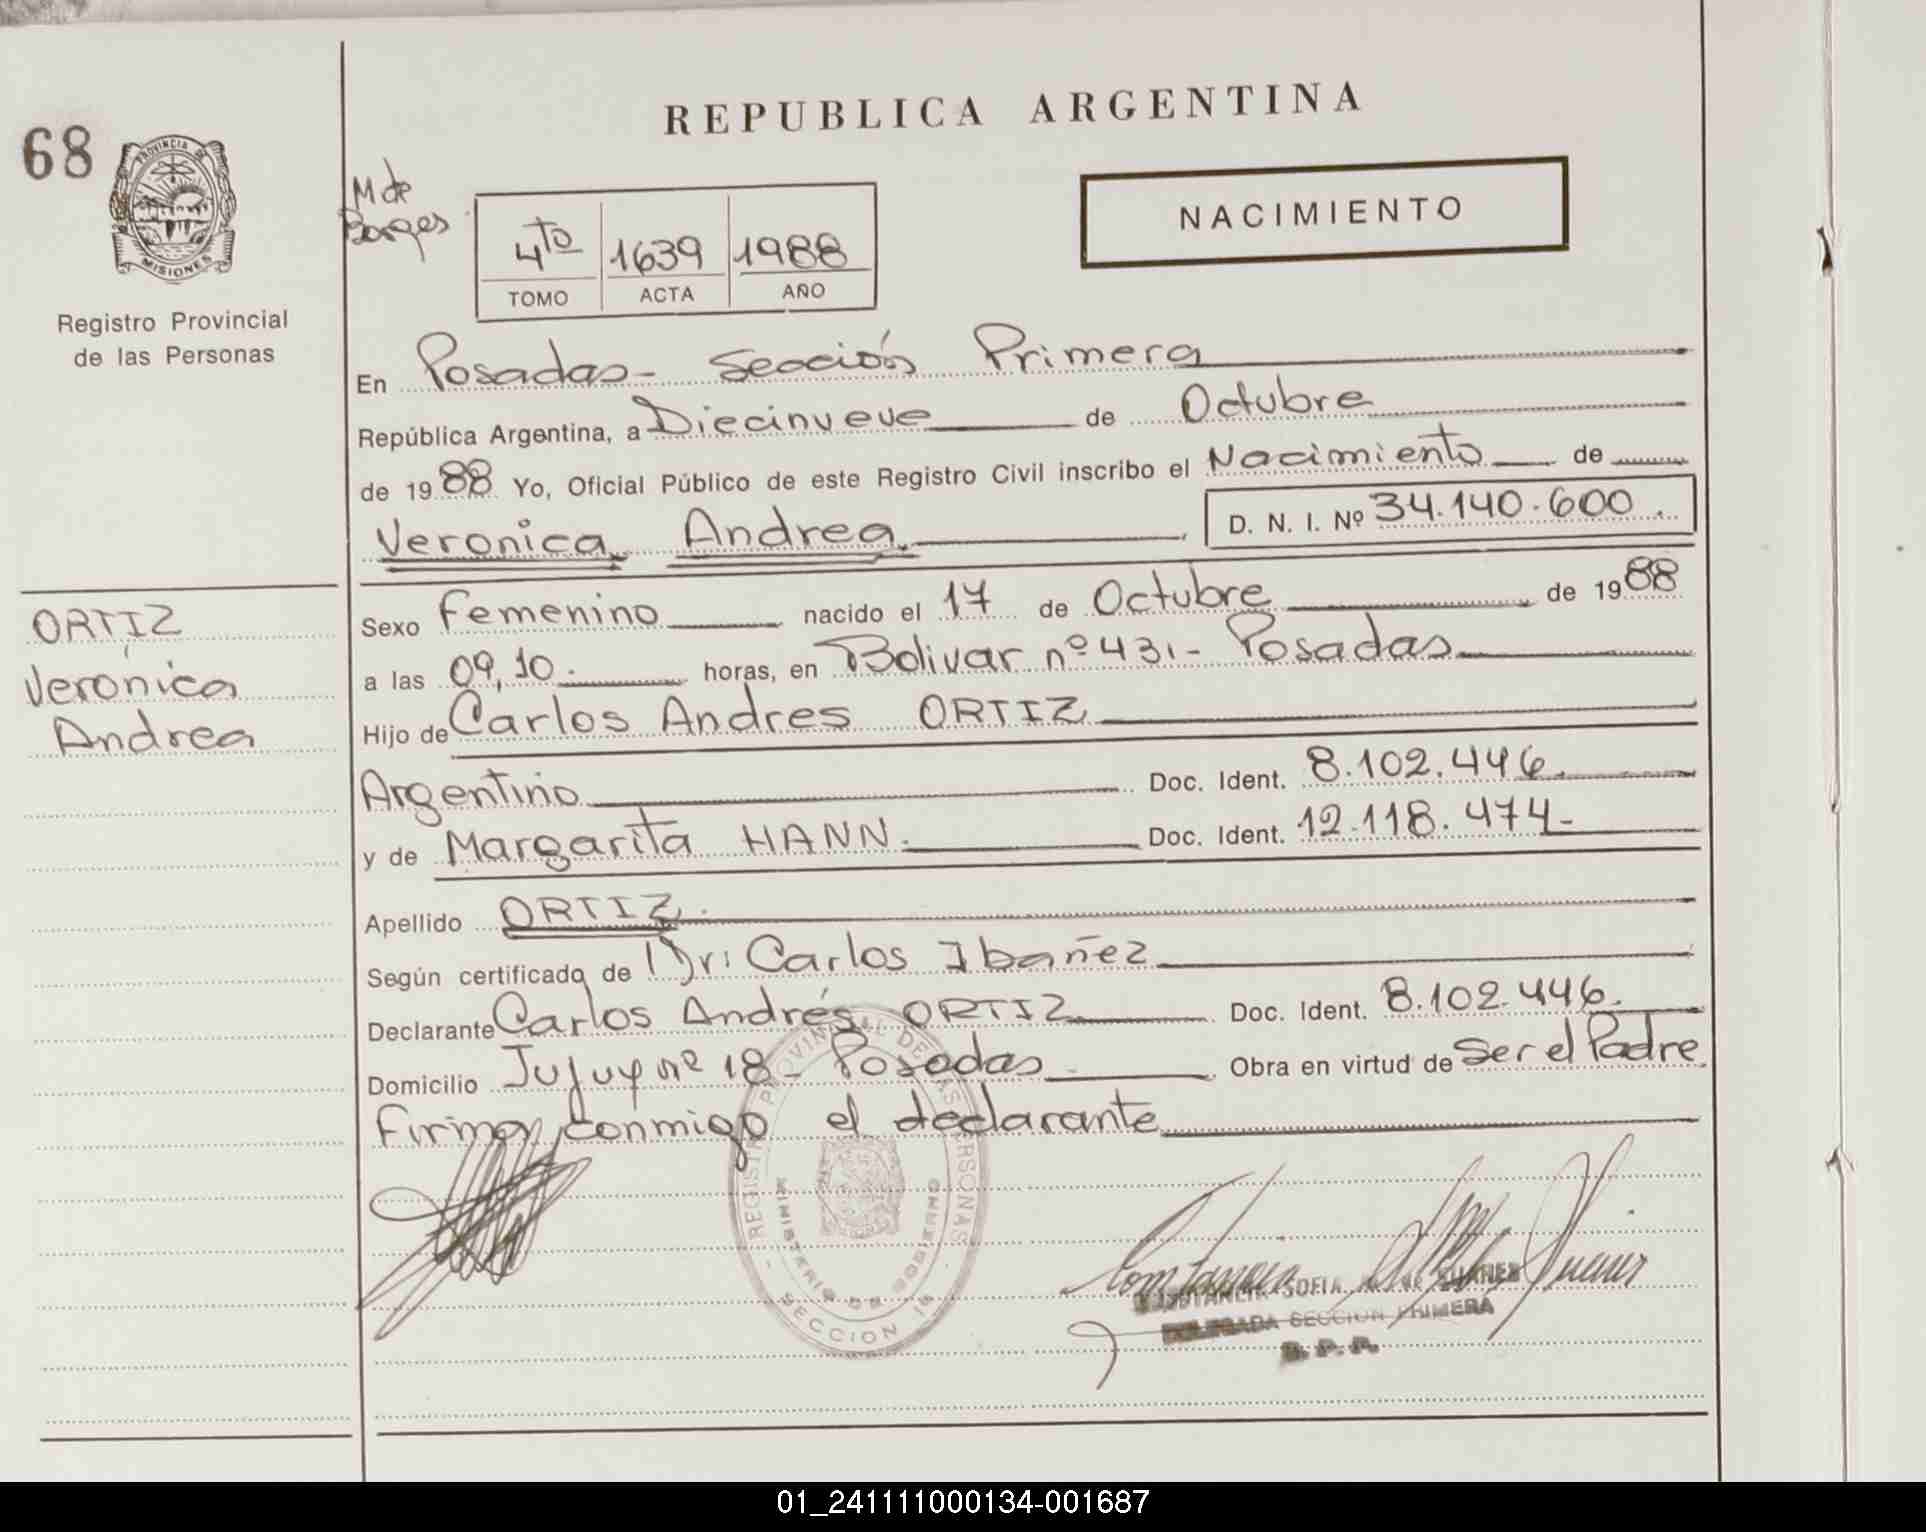 REPUBLICA ARGENTINA
68
PROVINCIA DE
MISIONES
Registro Provincial
de las Personas
M de
Borges
NACIMIENTO
4to 1639 1988
TOMO ACTA AÑO
En Posadas - Sección Primera
República Argentina, a Diecinueve de Octubre
de 1988 Yo, Oficial Público de este Registro Civil inscribo el Nacimiento de
Veronica Andrea D. N. I. Nº 34.140.600.
Sexo Femenino nacido el 17 de Octubre de 1988
a las 09,10. horas, en Bolivar nº 431 - Posadas
Hijo de Carlos Andres ORTIZ
Argentino Doc. Ident. 8.102.446.
y de Margarita HANN. Doc. Ident. 12.118.474-
Apellido ORTIZ.
Según certificado de Dr: Carlos Ibañez
Declarante Carlos Andrés ORTIZ Doc. Ident. 8.102.446.
Domicilio Jujuy nº 18 - Posadas Obra en virtud de Ser el Padre
Firma conmigo el declarante
ORTIZ
Verónica
Andrea
REGISTRO PROVINCIAL DE LAS PERSONAS
MINISTERIO DE GOBIERNO
SECCION 1ª
SOFIA SUAREZ
DELEGADA SECCION PRIMERA
R. P. P.
01_241111000134-001687